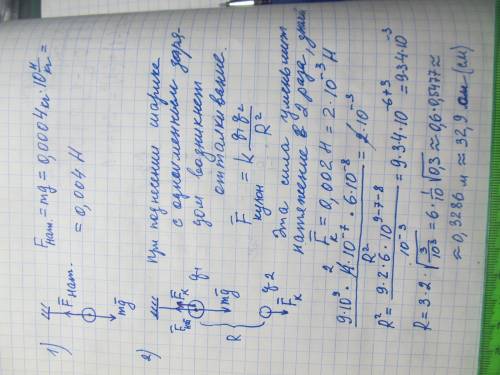 1)
Fнат.
mg
Fнат. = mg = 0,0004 кг · 10 Н/кг =
= 0,004 Н
2)
При поднесении шарика
с одноименным заря-
дом возникает
отталкивание.
Fк
q₁
mg
R
q₂
Fк
F = k q₁q₂/R²
кулон
Эта сила уменьшит
натяжение в 2 раза,
Fк = 0,002 Н = 2·10⁻³ Н
9·10⁹ · 4·10⁻⁷ · 6·10⁻⁸ / R² = 2·10⁻³
2
R² = 9·2·6·10⁹⁻⁷⁻⁸ / 10⁻³ = 9·34·10⁻⁶⁺³ = 934·10⁻³
R = 3·2·√(3/10³) = 6·1/10 √0,3 ≈ 0,6·0,5477 ≈
≈ 0,3286 м ≈ 32,9 см (см)